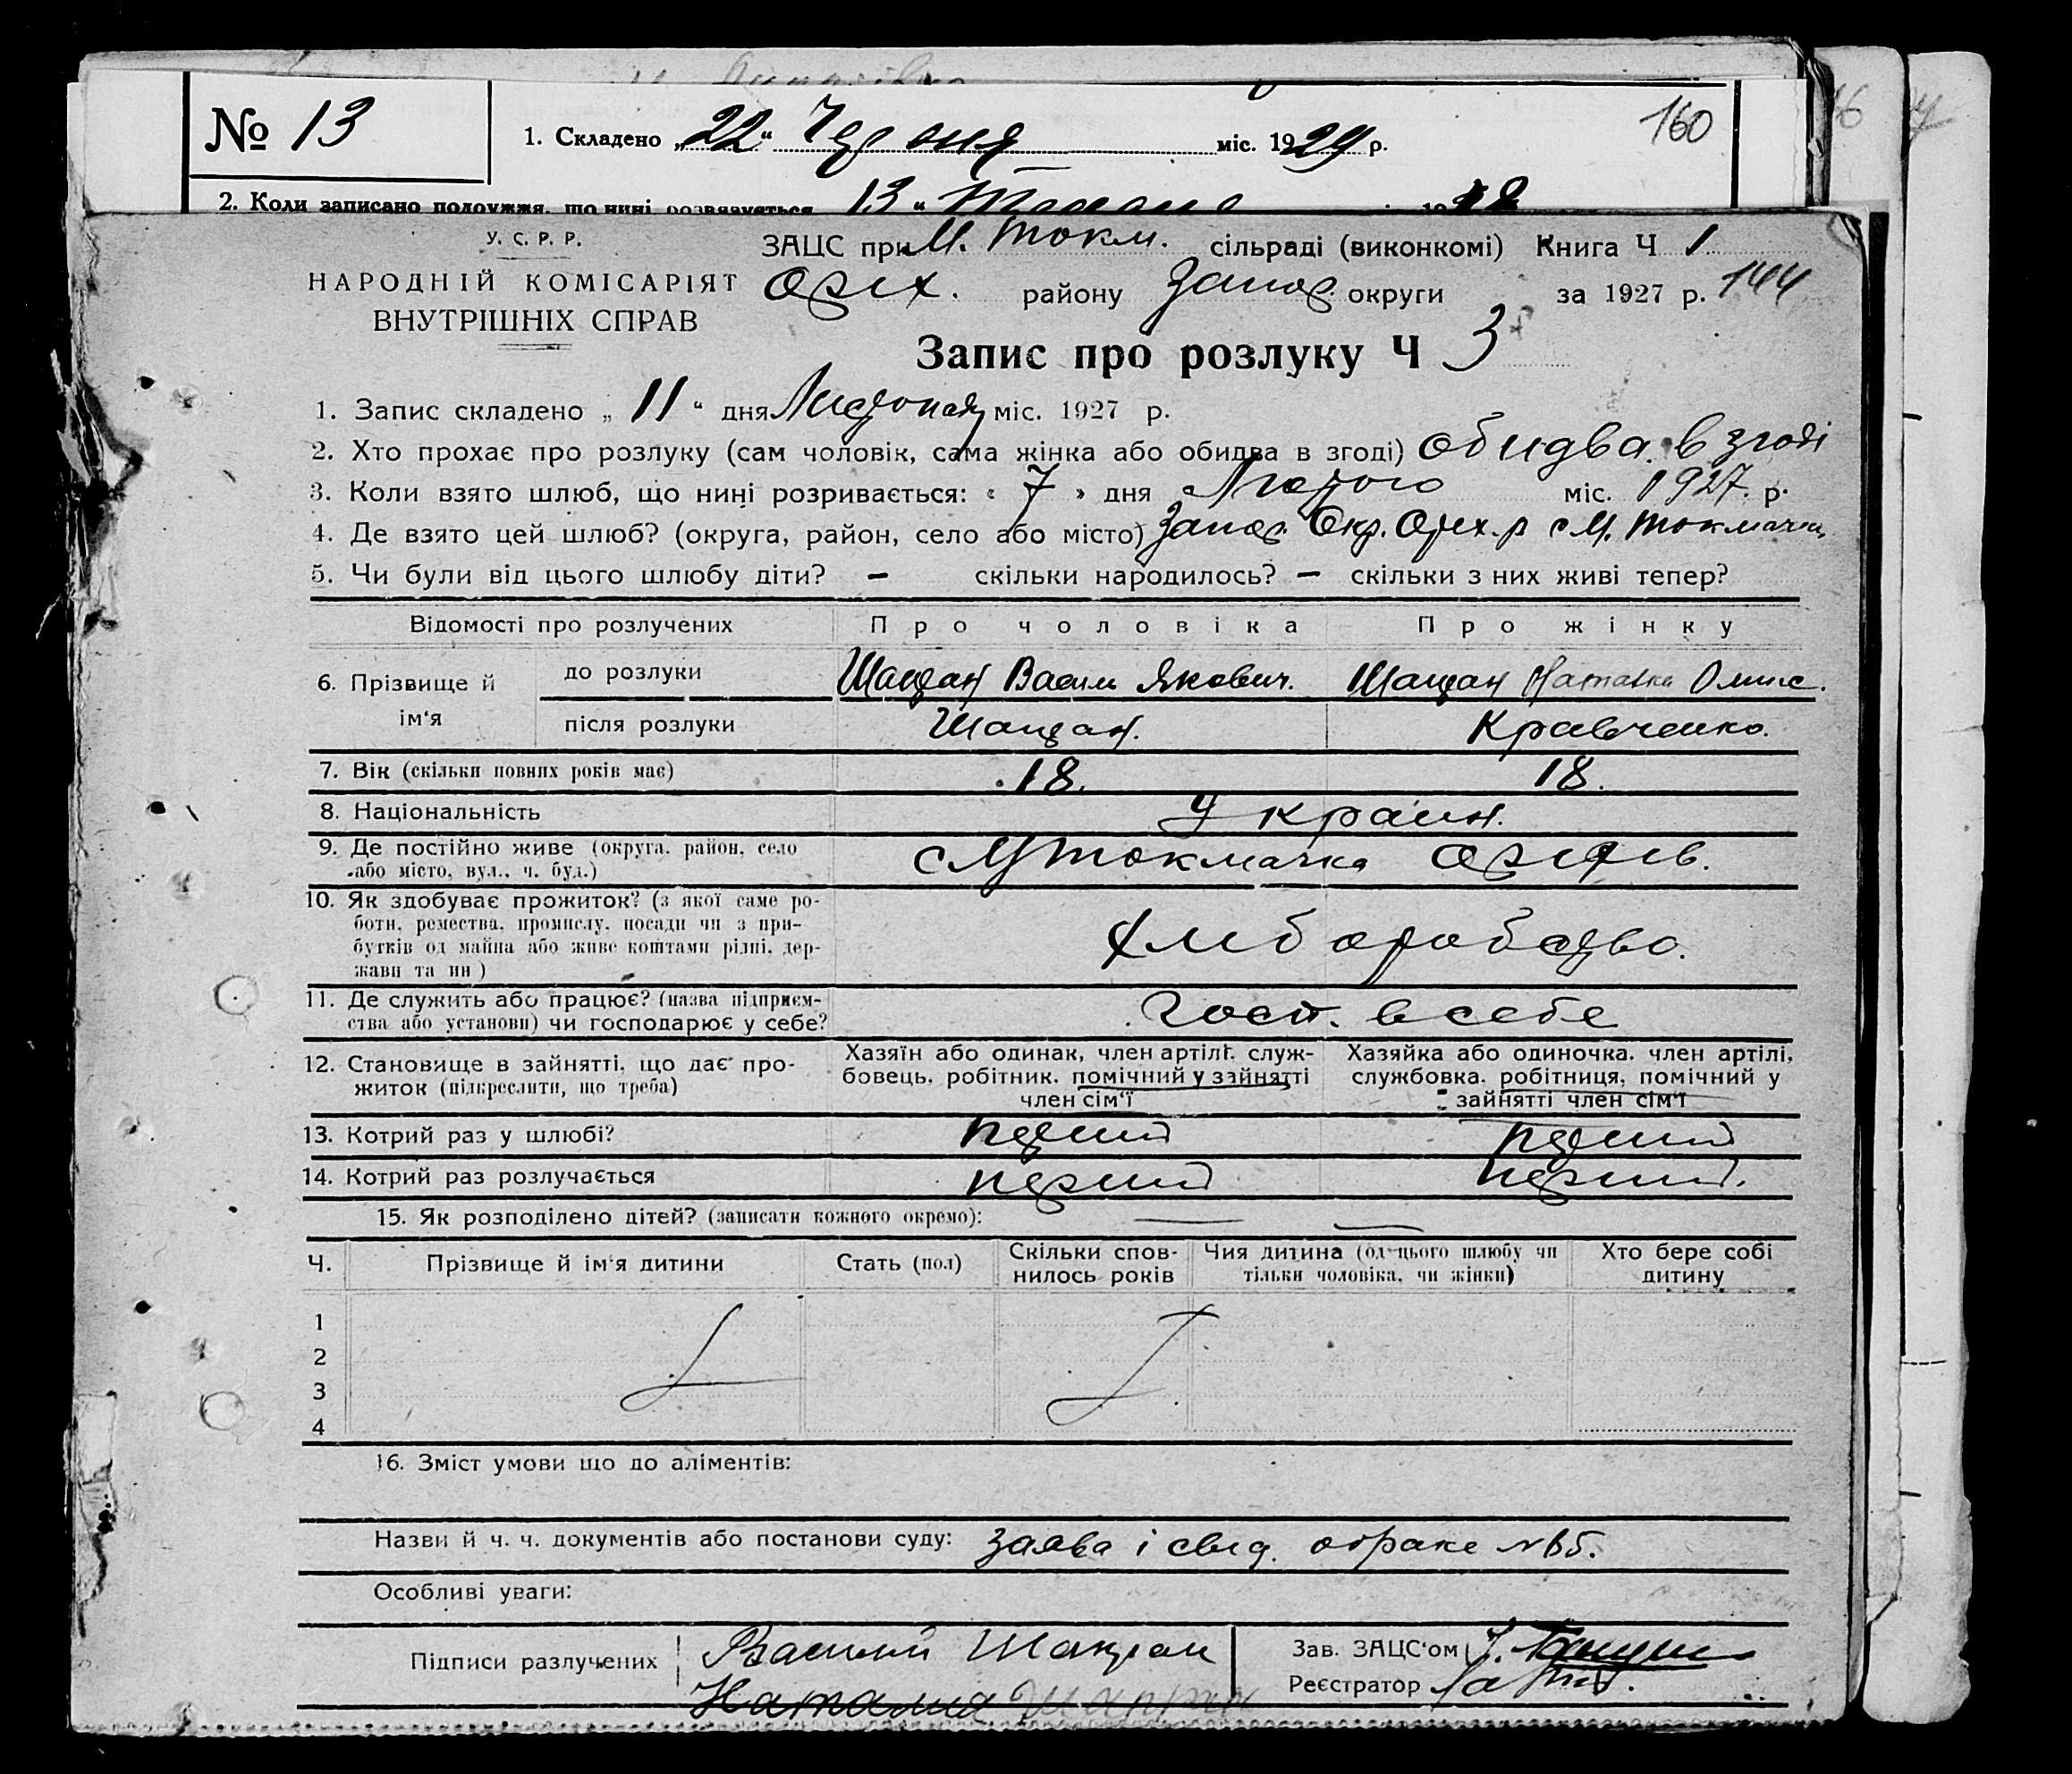 № 13
1. Складено „22“ Червня міс. 1929 р.
160
2. Коли записано подружжя, що нині розвязується 13 “
У. С. Р. Р.
НАРОДНІЙ КОМІСАРІЯТ
ВНУТРІШНІХ СПРАВ
ЗАЦС при М. Токм. сільраді (виконкомі) Книга Ч 1
Оріх. району Запор. округи за 1927 р. 144
Запис про розлуку Ч 3
1. Запис складено „11“ дня Листопаду міс. 1927 р.
2. Хто прохає про розлуку (сам чоловік, сама жінка або обидва в згоді) обидва в згоді
3. Коли взято шлюб, що нині розривається: « 7 » дня Лютого міс. 1927. р.
4. Де взято цей шлюб? (округа, район, село або місто) Запор. Окр. Орех. р с М. Токмачка
5. Чи були від цього шлюбу діти? — скільки народилось? — скільки з них живі тепер?
Відомості про розлучених Про чоловіка Про жінку
6. Прізвище й ім'я до розлуки Шацран Василь Якович. Шацран Наталка Омис.
після розлуки Шацран. Кравченко.
7. Вік (скільки повних років має) 18. 18.
8. Національність Украін.
9. Де постійно живе (округа, район, село
або місто, вул., ч. буд.) с М Токмачка Оріхів.
10. Як здобуває прожиток? (з якої саме ро-
боти, ремества, промислу, посади чи з при-
бутків од майна або живе коштами рідні, дер-
жави та ин) Хліборобство.
11. Де служить або працює? (назва підприєм-
ства або установи) чи господарює у себе? Госп. в себе
12. Становище в зайнятті, що дає про-
житок (підкреслити, що треба)
Хазяїн або одинак, член артілі, служ-
бовець, робітник, помічний у зайнятті
член сім'ї
Хазяйка або одиночка, член артілі,
службовка, робітниця, помічний у
зайнятті член сім'ї
13. Котрий раз у шлюбі? перший перший
14. Котрий раз розлучається перший перший.
15. Як розподілено дітей? (записати кожного окремо):
Ч. Прізвище й ім'я дитини Стать (пол) Скільки спов-
нилось років Чия дитина (од цього шлюбу чи
тільки чоловіка, чи жінки) Хто бере собі
дитину
1
2
3
4
16. Зміст умови що до аліментів:
Назви й ч. ч. документів або постанови суду: заява і свид. о браке №
Особливі уваги:
Підписи разлучених Василий Шацран
Наталия
Зав. ЗАЦС'ом
Реєстратор